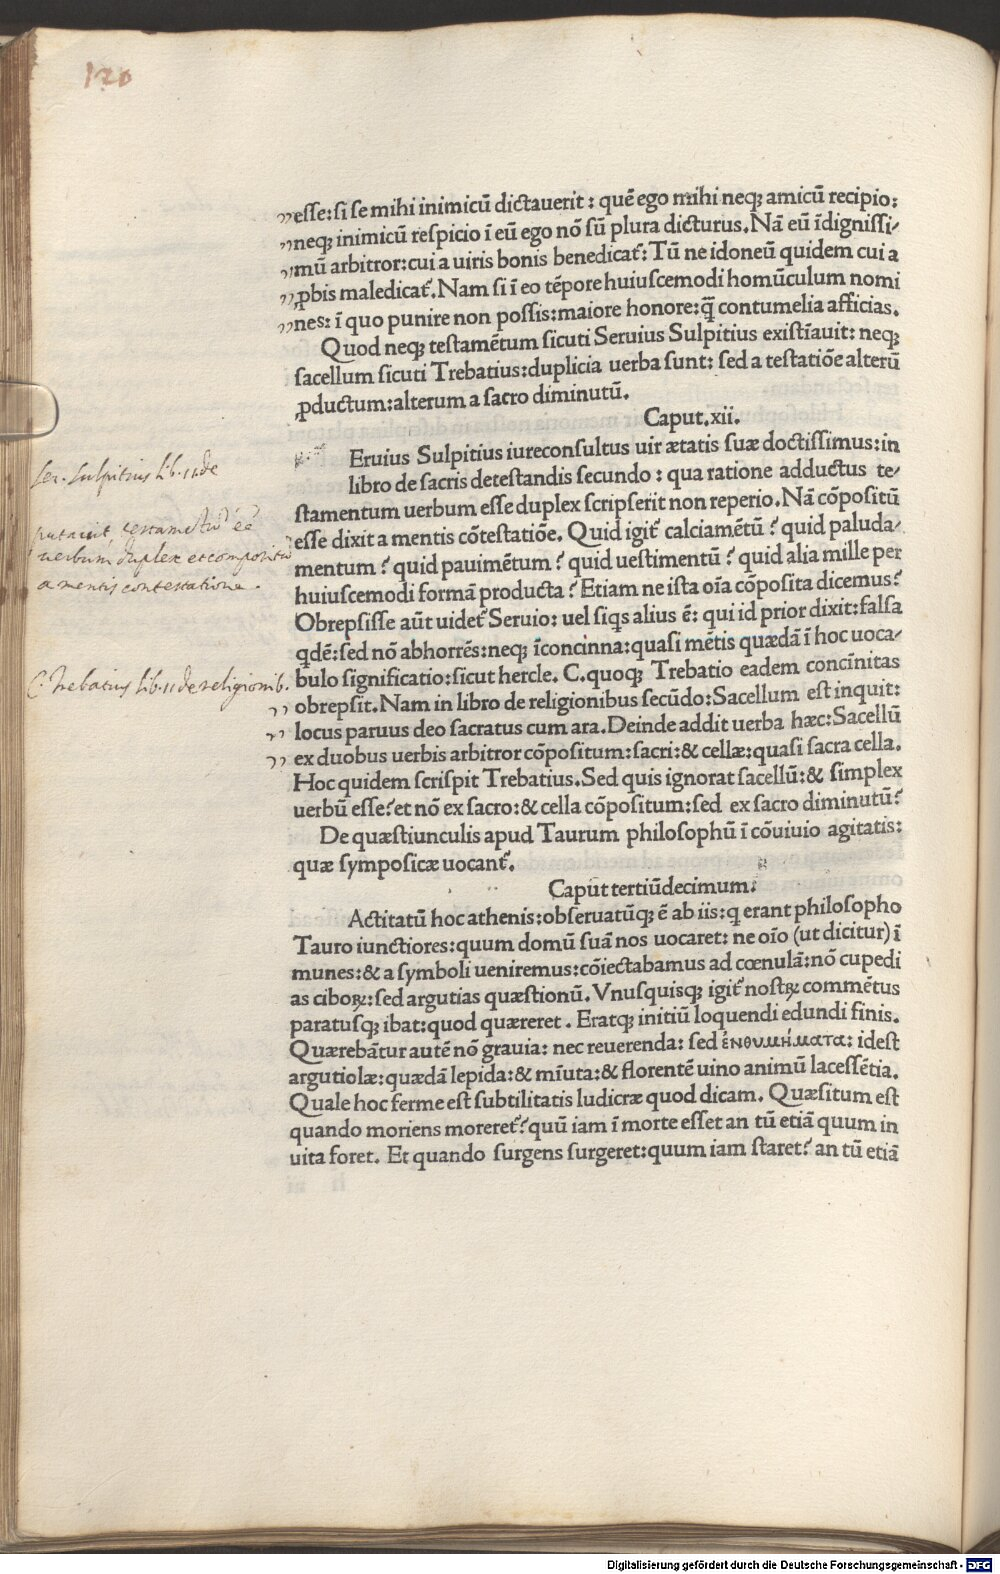 120
esse: si se mihi inimicū dictauerit: quē ego mihi neqꝫ amicū recipio:
neqꝫ inimicū respicio ī eū ego nō sū plura dicturus. Nā eū īdignissi/
mū arbitror: cui a uiris bonis benedicat᷑: Tū ne idoneū quidem cui a
ꝓbis maledicat᷑. Nam si ī eo tēpore huiuscemodi homūculum nomi
nes: ī quo punire non possis: maiore honore: q̄ contumelia afficias.
Quod neqꝫ testamētum sicuti Seruius Sulpitius existīauit: neqꝫ
sacellum sicuti Trebatius: duplicia uerba sunt: sed a testatiōe alterū
ꝓductum: alterum a sacro diminutū.
Caput. xii.
Eruius Sulpitius iureconsultus uir ætatis suæ doctissimus: in
libro de sacris detestandis secundo: qua ratione adductus te/
stamentum uerbum esse duplex scripserit non reperio. Nā cōpositū
esse dixit a mentis cōtestatiōe. Quid igit᷑ calciamētū? quid paluda/
mentum? quid pauimētum? quid uestimentū? quid alia mille per
huiuscemodi formā producta? Etiam ne ista oīa cōposita dicemus?
Obrepsisse aūt uidet᷑ Seruio: uel siqs alius ē: qui id prior dixit: falsa
qdē: sed nō abhorrēs: neqꝫ īconcinna: quasi mētis quædā ī hoc uoca/
bulo significatio: sicut hercle. C. quoqꝫ Trebatio eadem concīnitas
obrepsit. Nam in libro de religionibus secūdo: Sacellum est inquit:
locus paruus deo sacratus cum ara. Deinde addit uerba hæc: Sacellū
ex duobus uerbis arbitror cōpositum: sacri: & cellæ: quasi sacra cella.
Hoc quidem scripsit Trebatius. Sed quis ignorat sacellū: & simplex
uerbū esse? et nō ex sacro: & cella cōpositum: sed ex sacro diminutū?
De quæstiunculis apud Taurum philosophū ī cōuiuio agitatis:
quæ symposicæ uocant᷑.
Caput tertiūdecimum.
Actitatū hoc athenis: obseruatūqꝫ ē ab iis: q erant philosopho
Tauro iunctiores: quum domū suā nos uocaret: ne oīo (ut dicitur) ī
munes: & a symboli ueniremus: cōiectabamus ad cœnulā: nō cupedi
as ciboꝝ: sed argutias quæstionū. Vnusquisqꝫ igit᷑ nostꝝ commētus
paratusqꝫ ibat: quod quæreret. Eratqꝫ initiū loquendi edundi finis.
Quærebātur autē nō grauia: nec reuerenda: sed ἐνθυμήματα: idest
argutiolæ: quædā lepida: & mīuta: & florentē uino animū lacessētia.
Quale hoc ferme est subtilitatis ludicræ quod dicam. Quæsitum est
quando moriens moreret᷑? quū iam ī morte esset an tū etiā quum in
uita foret. Et quando surgens surgeret: quum iam staret? an tū etiā
Ser. Sulpitius lib. 11 de
putauit testamētū eē
uerbum duplex et compositū
a mentis contestatione.
C. Trebatius lib. 11 de religionib.
Digitalisierung gefördert durch die Deutsche Forschungsgemeinschaft - DFG